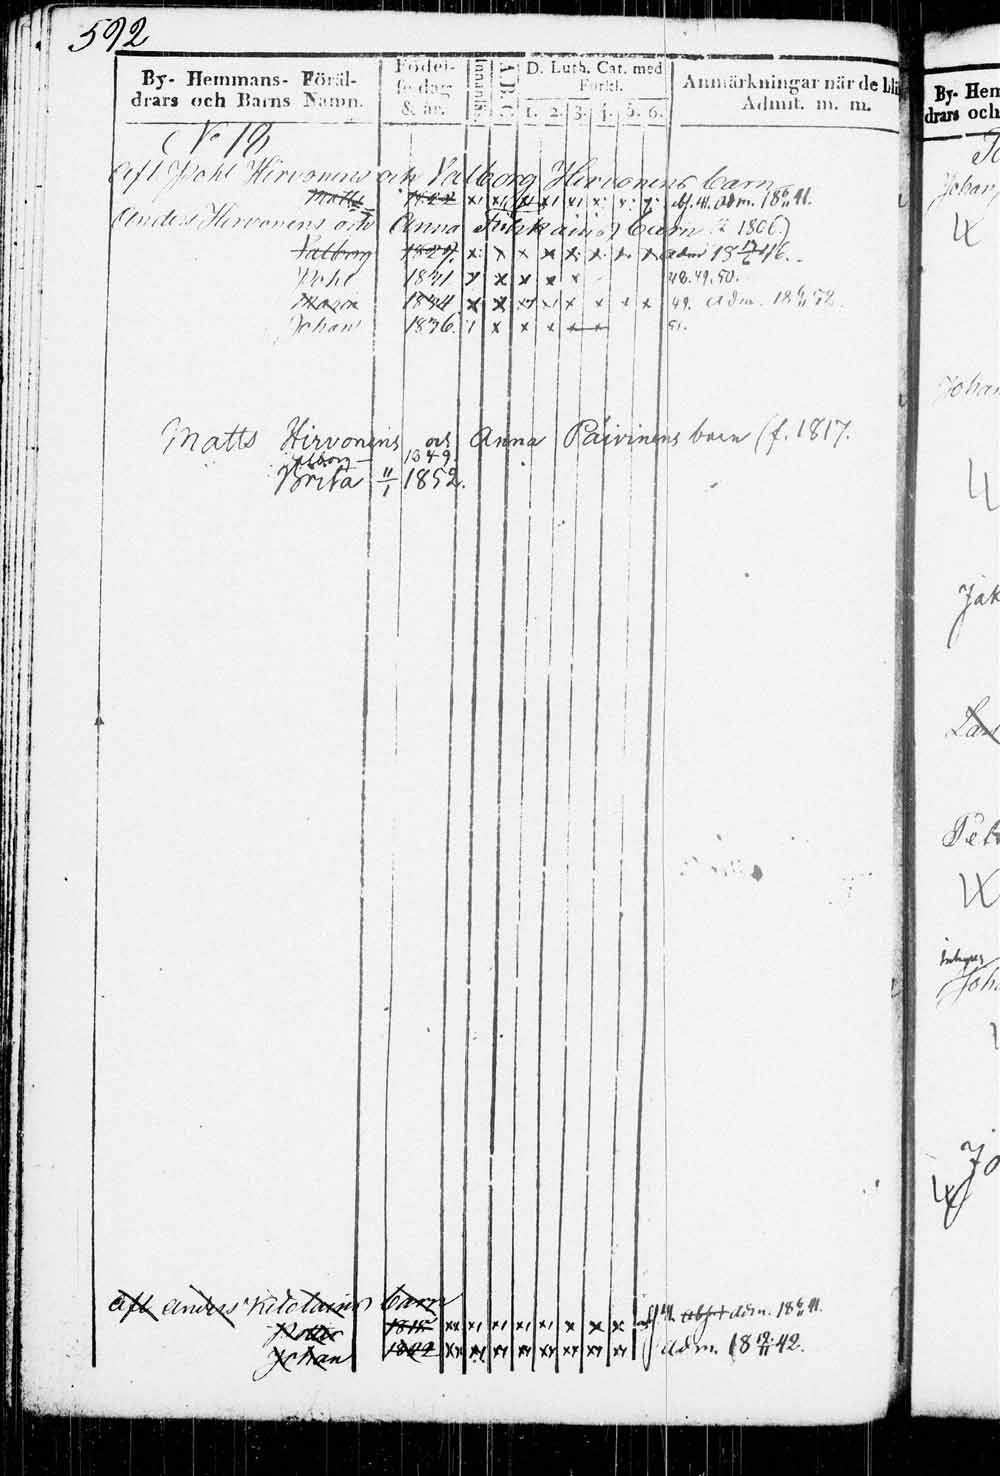 592
By- Hemmans- Föräl-
drars och Barns Namn.
Födel-
sedag
& år.
Innanläs.
A.B.C.
D. Luth. Cat. med
Förkl.
1. 2. 3. 4. 5. 6.
Anmärkningar när de bli
Admit. m. m.
No 19
Afl Pohl Hirvonens och Valborg Hirvonens barn
Matts 1822 x x x x x x x x Adm. 18 41.
Anders Hirvonens och Anna barn 1806.)
Valborg 1827. x x x x x x x x adm 18 17/6 46.
Pohl 1831 x x x x x 48. 49. 50.
1834 x x x x x x x x 49. adm. 18 52.
Johan 1836. x x x x x 51.
Matts Hirvonens och Anna Päivinens barn (f. 1817.
1849.
Brita 11/1 1852.
Afl Anders barn
Petter 1818 xx x x x x x x x adm. 18 41.
Johan 1822 xx xx xx xx xx xx xx xx Adm. 18 42.
By- Hem
drars och
Johan
Johan
Jak
Lars
Pett
Joh
Jo